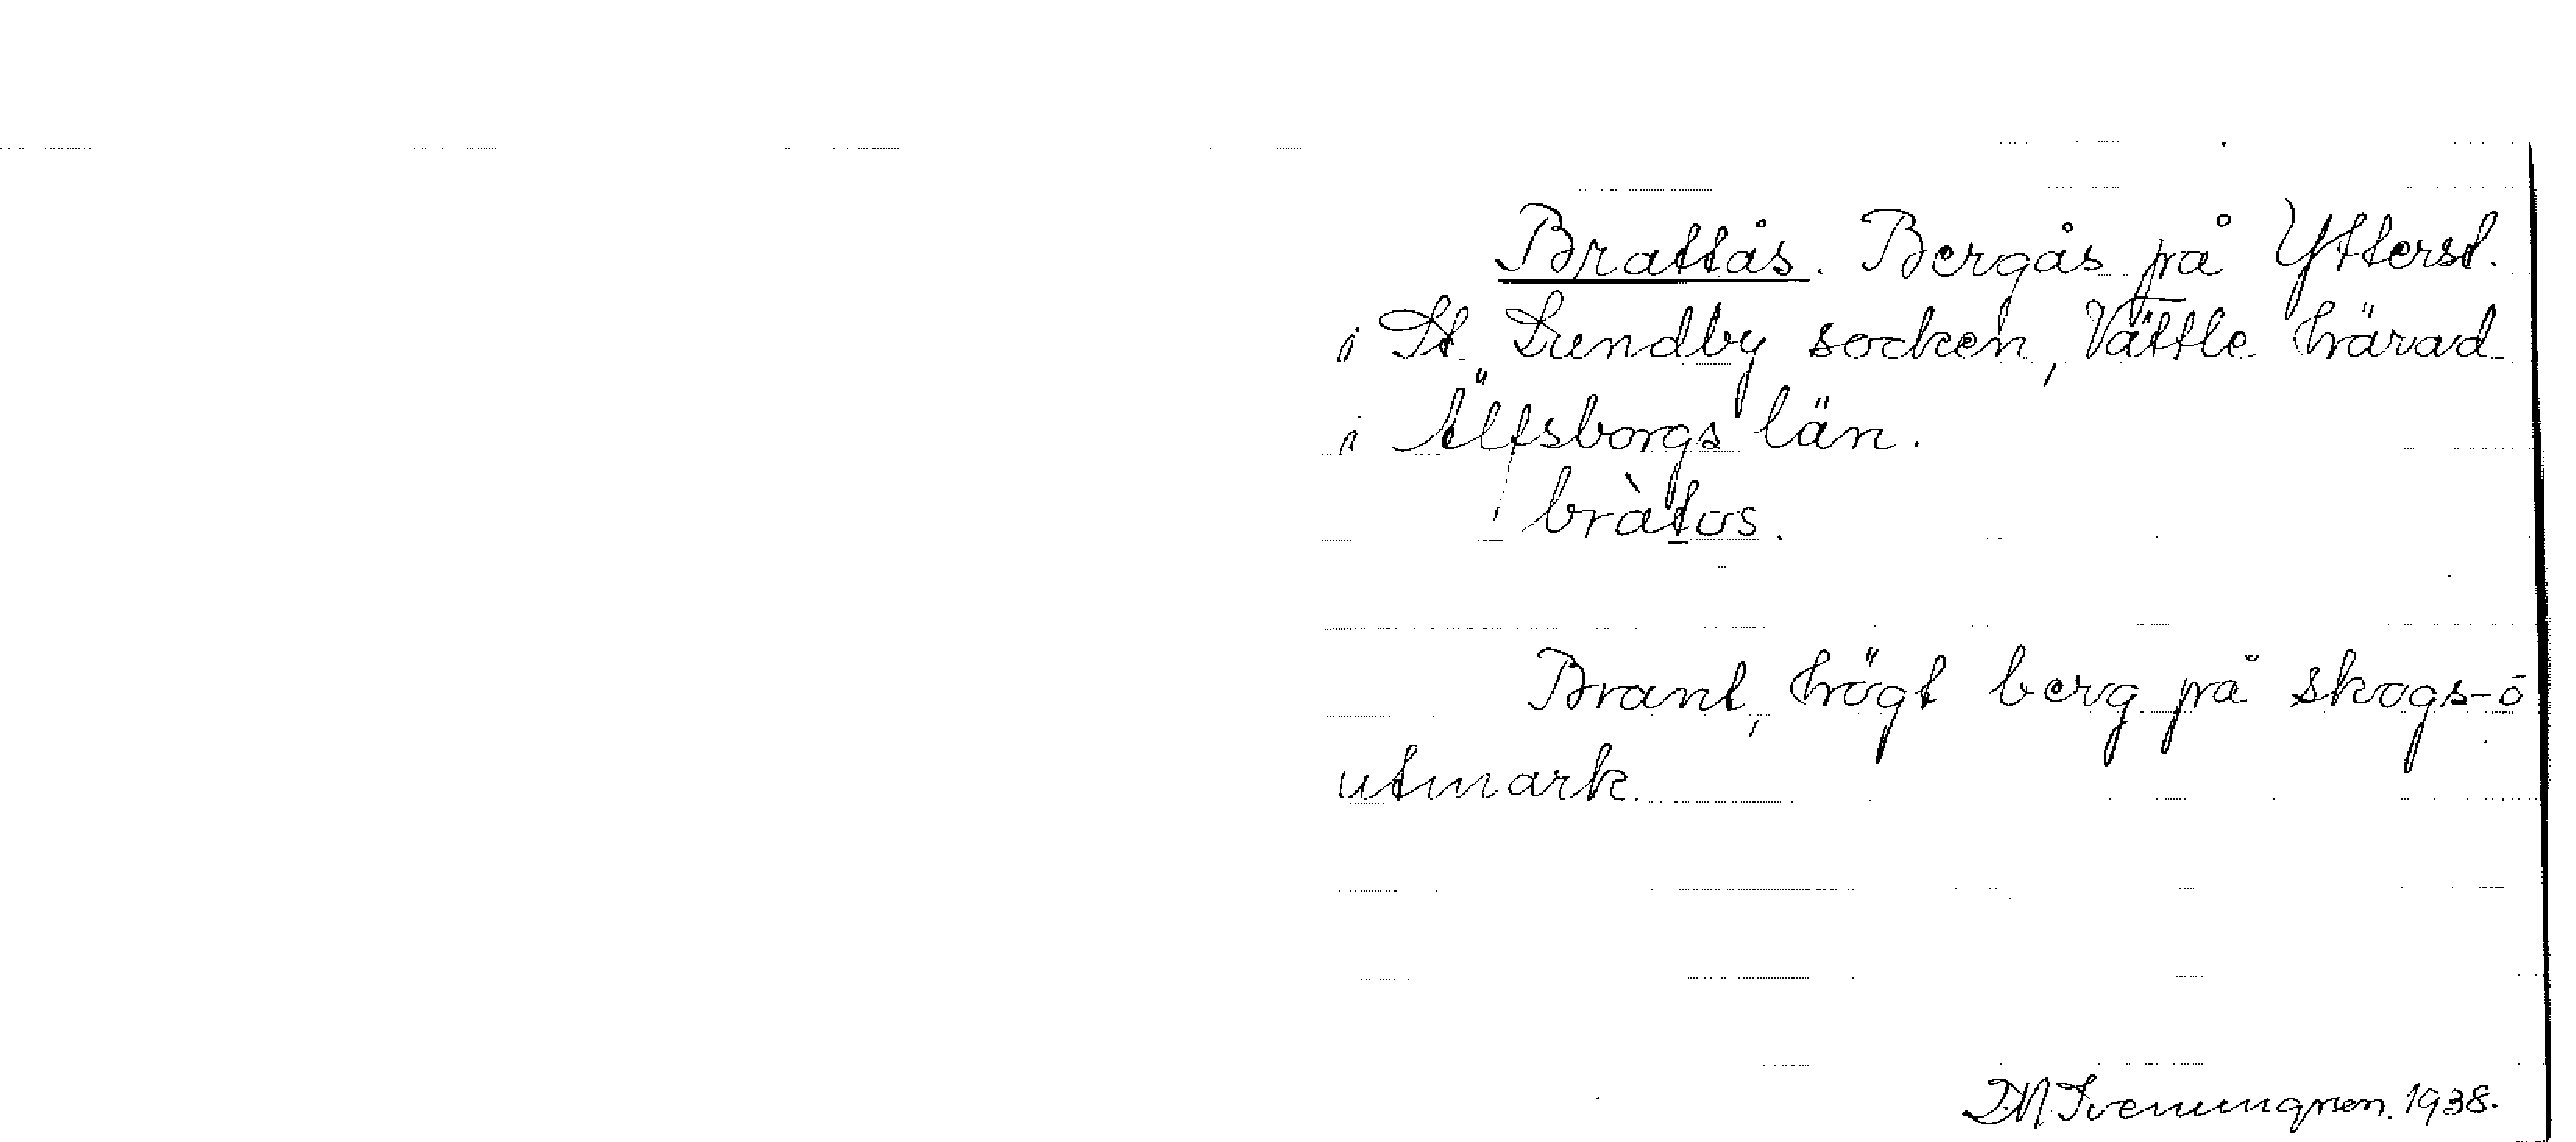 Brattås. Bergås på Ytterst.
i St. Lundby socken, Vättle härad
i Älfsborgs län.
bràtos.
Brant, högt berg på skogs-ö
utmark.
D.N. Svenungsson. 1938.